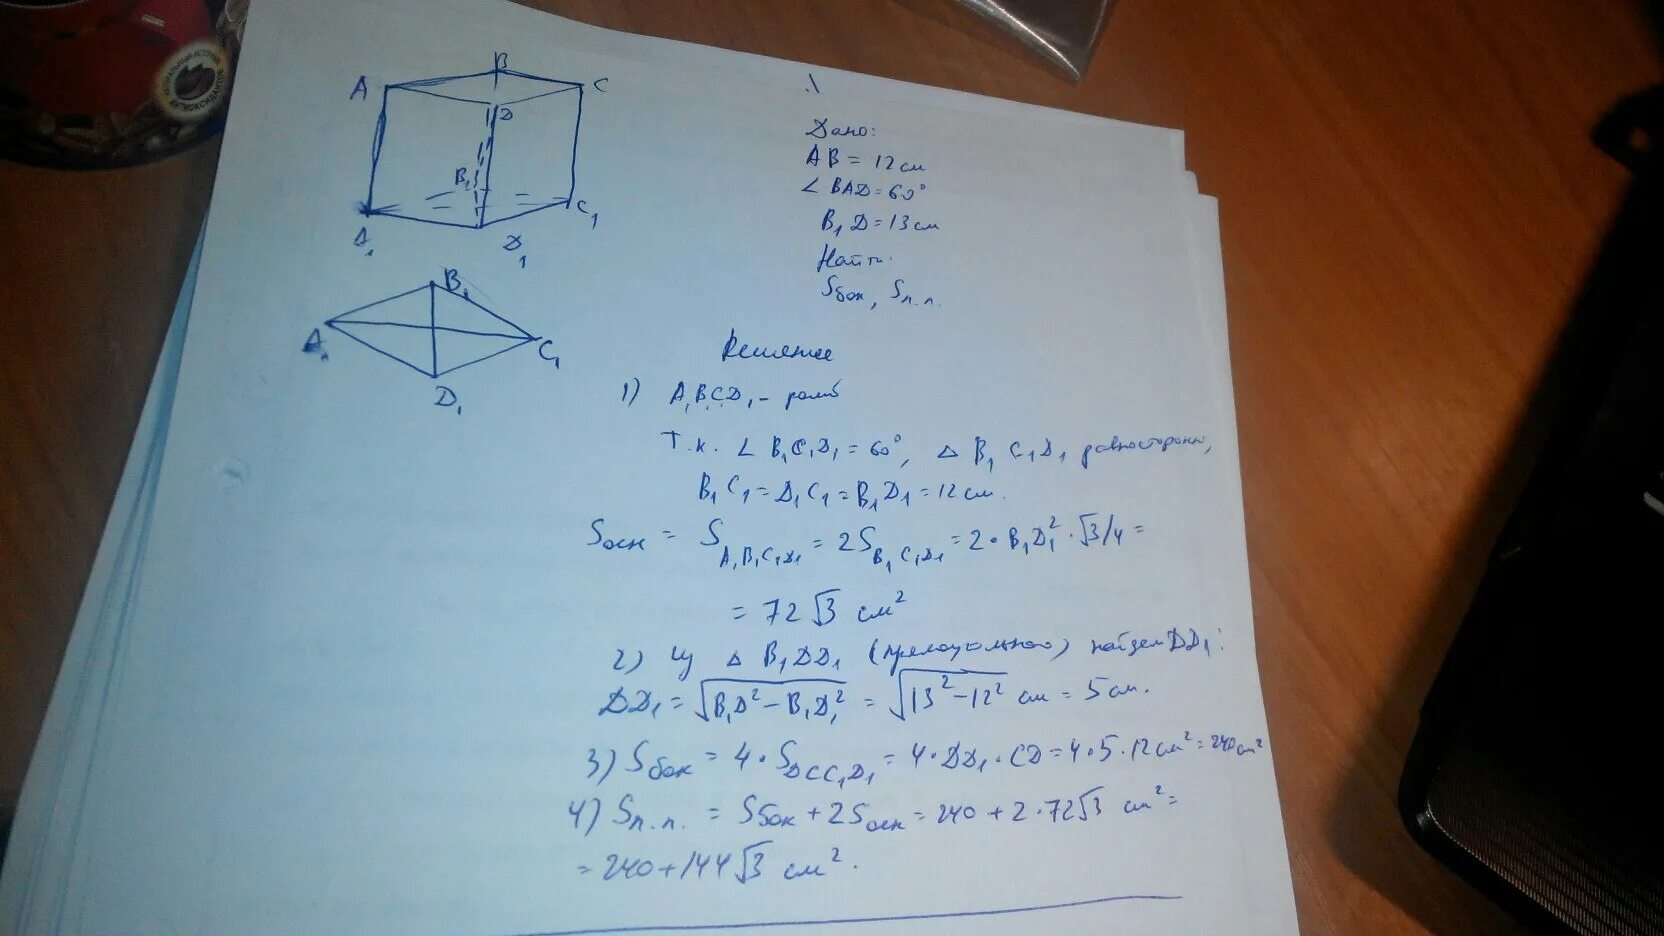 НАТУРАЛЬНЫЙ ИСТОЧНИК АНТИОКСИДАНТОВ
B
A
C
D
B₁
A₁
D₁
C₁
B₁
A₁
C₁
D₁
Дано:
AB = 12 см
∠ BAD = 60°
B₁D = 13 см
Найти:
Sбок, Sп.п.
Решение
1) A₁B₁C₁D₁ – ромб
Т.к. ∠ B₁C₁D₁ = 60°, △ B₁C₁D₁ равносторонн,
B₁C₁ = D₁C₁ = B₁D₁ = 12 см.
Sосн = S A₁B₁C₁D₁ = 2S B₁C₁D₁ = 2 · B₁D₁² · √3/4 =
= 72√3 см²
2) Из △ B₁DD₁ (прямоугольного) найдем DD₁:
DD₁ = √(B₁D² – B₁D₁²) = √(13² – 12²) см = 5 см.
3) Sбок = 4 · S DCC₁D₁ = 4 · DD₁ · CD = 4 · 5 · 12 см² = 240 см²
4) Sп.п. = Sбок + 2Sосн = 240 + 2 · 72√3 см² =
= 240 + 144√3 см².